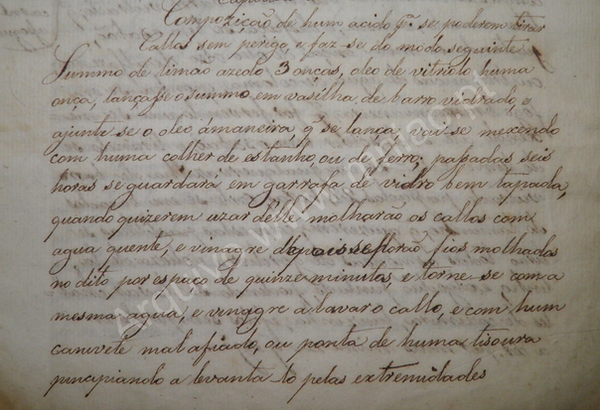 Compozição de hum acido q.e se poderem tirar
Callos sem perigo, e faz-se do modo seguinte
Summo de limão azedo 3 onças, oleo de vitriolo huma
onça, lança-se o summo em vasilha de barro vidrado, e
ajunte-se o oleo ámaneira, q. se lança, vai-se mexendo
com huma colher de estanho, ou de ferro; passadas seis
horas se guardará em garrafa de vidro bem tapada,
quando quizerem uzar delle molharão os callos com
agua quente, e vinagre depois se porão fios molhados
no dito por espaço de quinze minutos, e torne-se com a
mesma agua, e vinagre a lavar o callo, e com hum
canivete mal afiado, ou ponta de huma tisoura
principiando a levanta-lo pelas extremidades